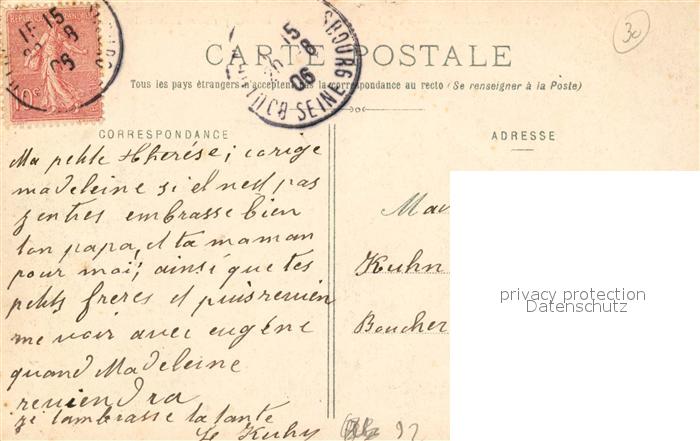 REPUBLIQUE FRANÇAISE
10c
15 15
8
06
15
8
06
SBOURG
SEINE
30
CARTE POSTALE
Tous les pays étrangers n'acceptent pas la correspondance au recto (Se renseigner à la Poste)
CORRESPONDANCE
Ma petite therése; corige
madeleine si el nest pas
zentres embrasse bien
ton papa, et ta maman
pour moi; ainsi que tes
petits freres et puis revien
me voir avec eugène
quand Madeleine
reviendra
ze tembrasse ta tante
Kuhn
ADRESSE
Kuhn
Boucher
92
privacy protection
Datenschutz